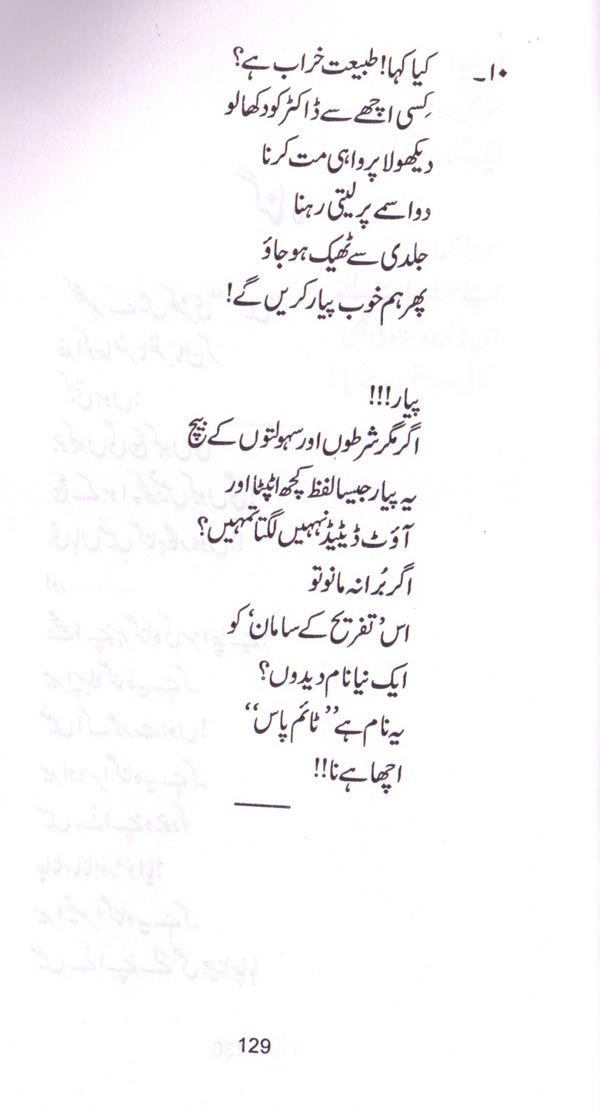 ۱۰۔ کیا کہا! طبیعت خراب ہے؟
کِسی اچھے سے ڈاکٹر کو دکھا لو
دیکھو لا پرواہی مت کرنا
دوا سمے پر لیتی رہنا
جلدی سے ٹھیک ہو جاؤ
پھر ہم خوب پیار کریں گے!
پیار!!!
اگر مگر شرطوں اور سہولتوں کے بیچ
یہ پیار جیسا لفظ کچھ اٹپٹا اور
آؤٹ ڈیٹیڈ نہیں لگتا تمہیں؟
اگر بُرا نہ مانو تو
اس ’تفریح کے سامان‘ کو
ایک نیا نام دیدوں؟
یہ نام ہے ’’ٹائم پاس‘‘
اچھا ہے نا!!
129